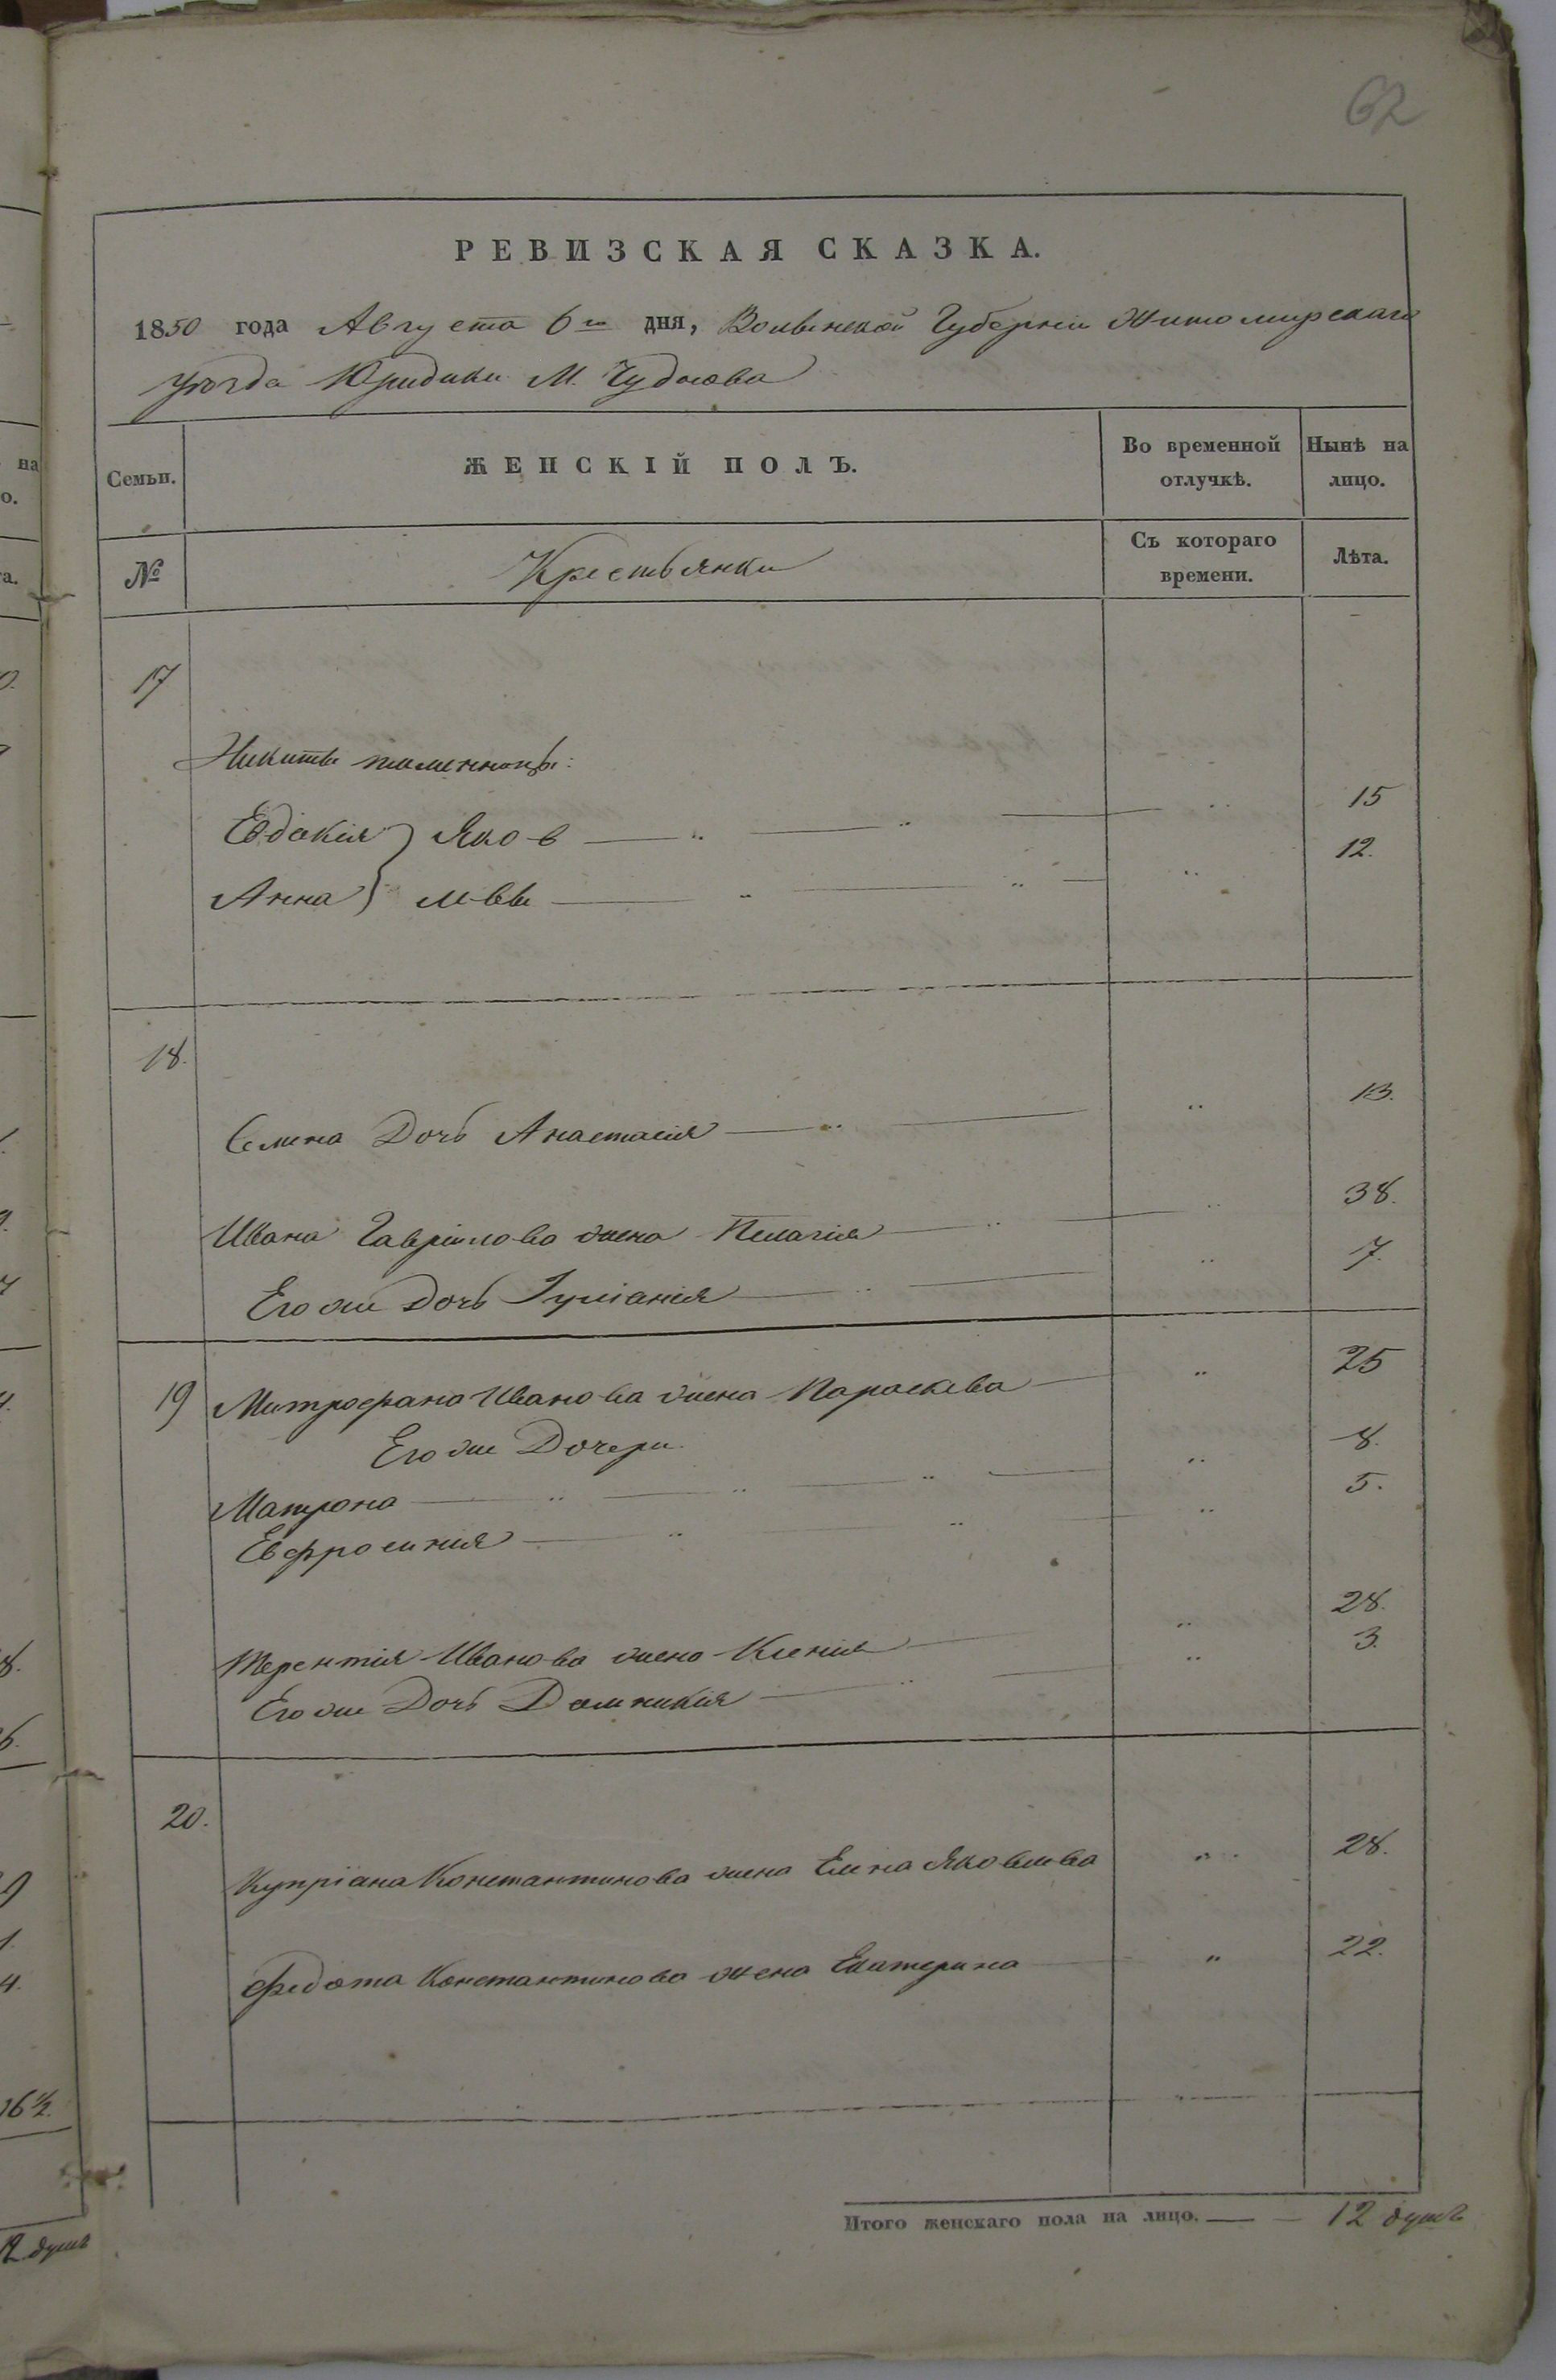 62
РЕВИЗСКАЯ СКАЗКА.
1850 года Августа 6го дня, Волынской Губерніи Житомирскаго
уѣзда Юридики М. Чуднова
Семьи. ЖЕНСКІЙ ПОЛЪ. Во временной отлучкѣ. Нынѣ на лицо.
№ Крестьянки Съ котораго времени. Лѣта.
17
Никиты племенницы:
Евдокія } Яков — " — " — " 15
Анна } левы — " — " — " 12.
18.
Семена Дочь Анастасія — " — " 13.
Ивана Гаврилова жена Пелагія — " — " 38.
Его же Дочь Іуліанія — " — " 7.
19 Митрофана Иванова жена Параскева — " 25
Его же Дочери
Матрона — " — " — " — " 8.
Евфросинія — " — " — " 5.
Терентія Иванова жена Ксенія — " 28.
Его же Дочь Домникія — " — " 3.
20.
Купріана Константинова жена Елена Яковлева " 28.
Федота Константинова жена Екатерина — " 22.
Итого женскаго пола на лицо. — — 12 душъ
на
о.
а.
16 1/2.
12 душъ